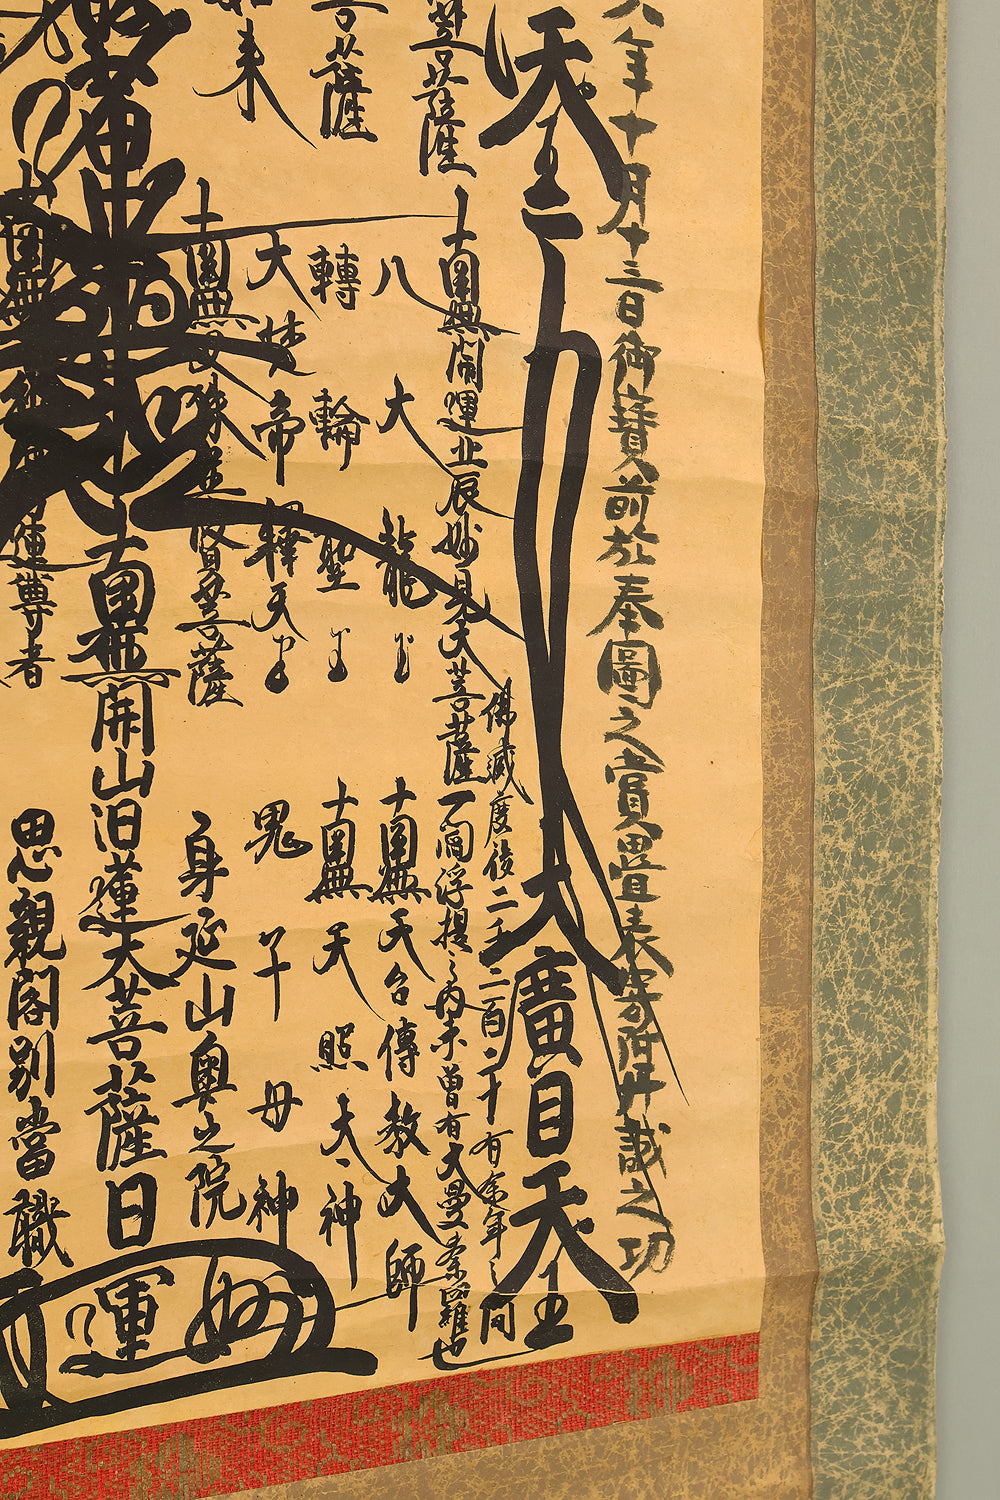 年十月十三日御寶前於奉圖之賞畳表寄附丹誠之功
天王
大廣目天王
佛滅度後二千二百二十有余年之間
一閻浮提之内未曽有大曼荼羅也
菩薩
南無開運北辰妙見大菩薩
南無天台傳教大師
菩薩
八大龍王
南無天照大神
轉輪聖王
来
大梵帝釋天王
鬼子母神
南無文殊普賢菩薩
身延山奥之院
南無開山日蓮大菩薩
日
思親閣別當職
尊者
妙
運